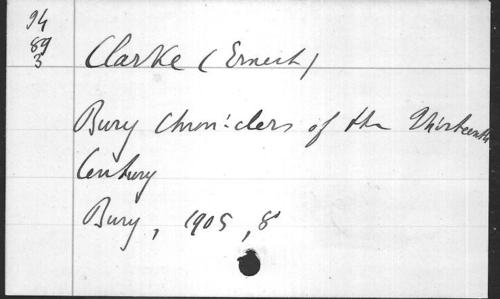 94
89
3
Clarke (Ernest)
Bury Chroniclers of the Thirteenth
Century
Bury, 1905, 8°